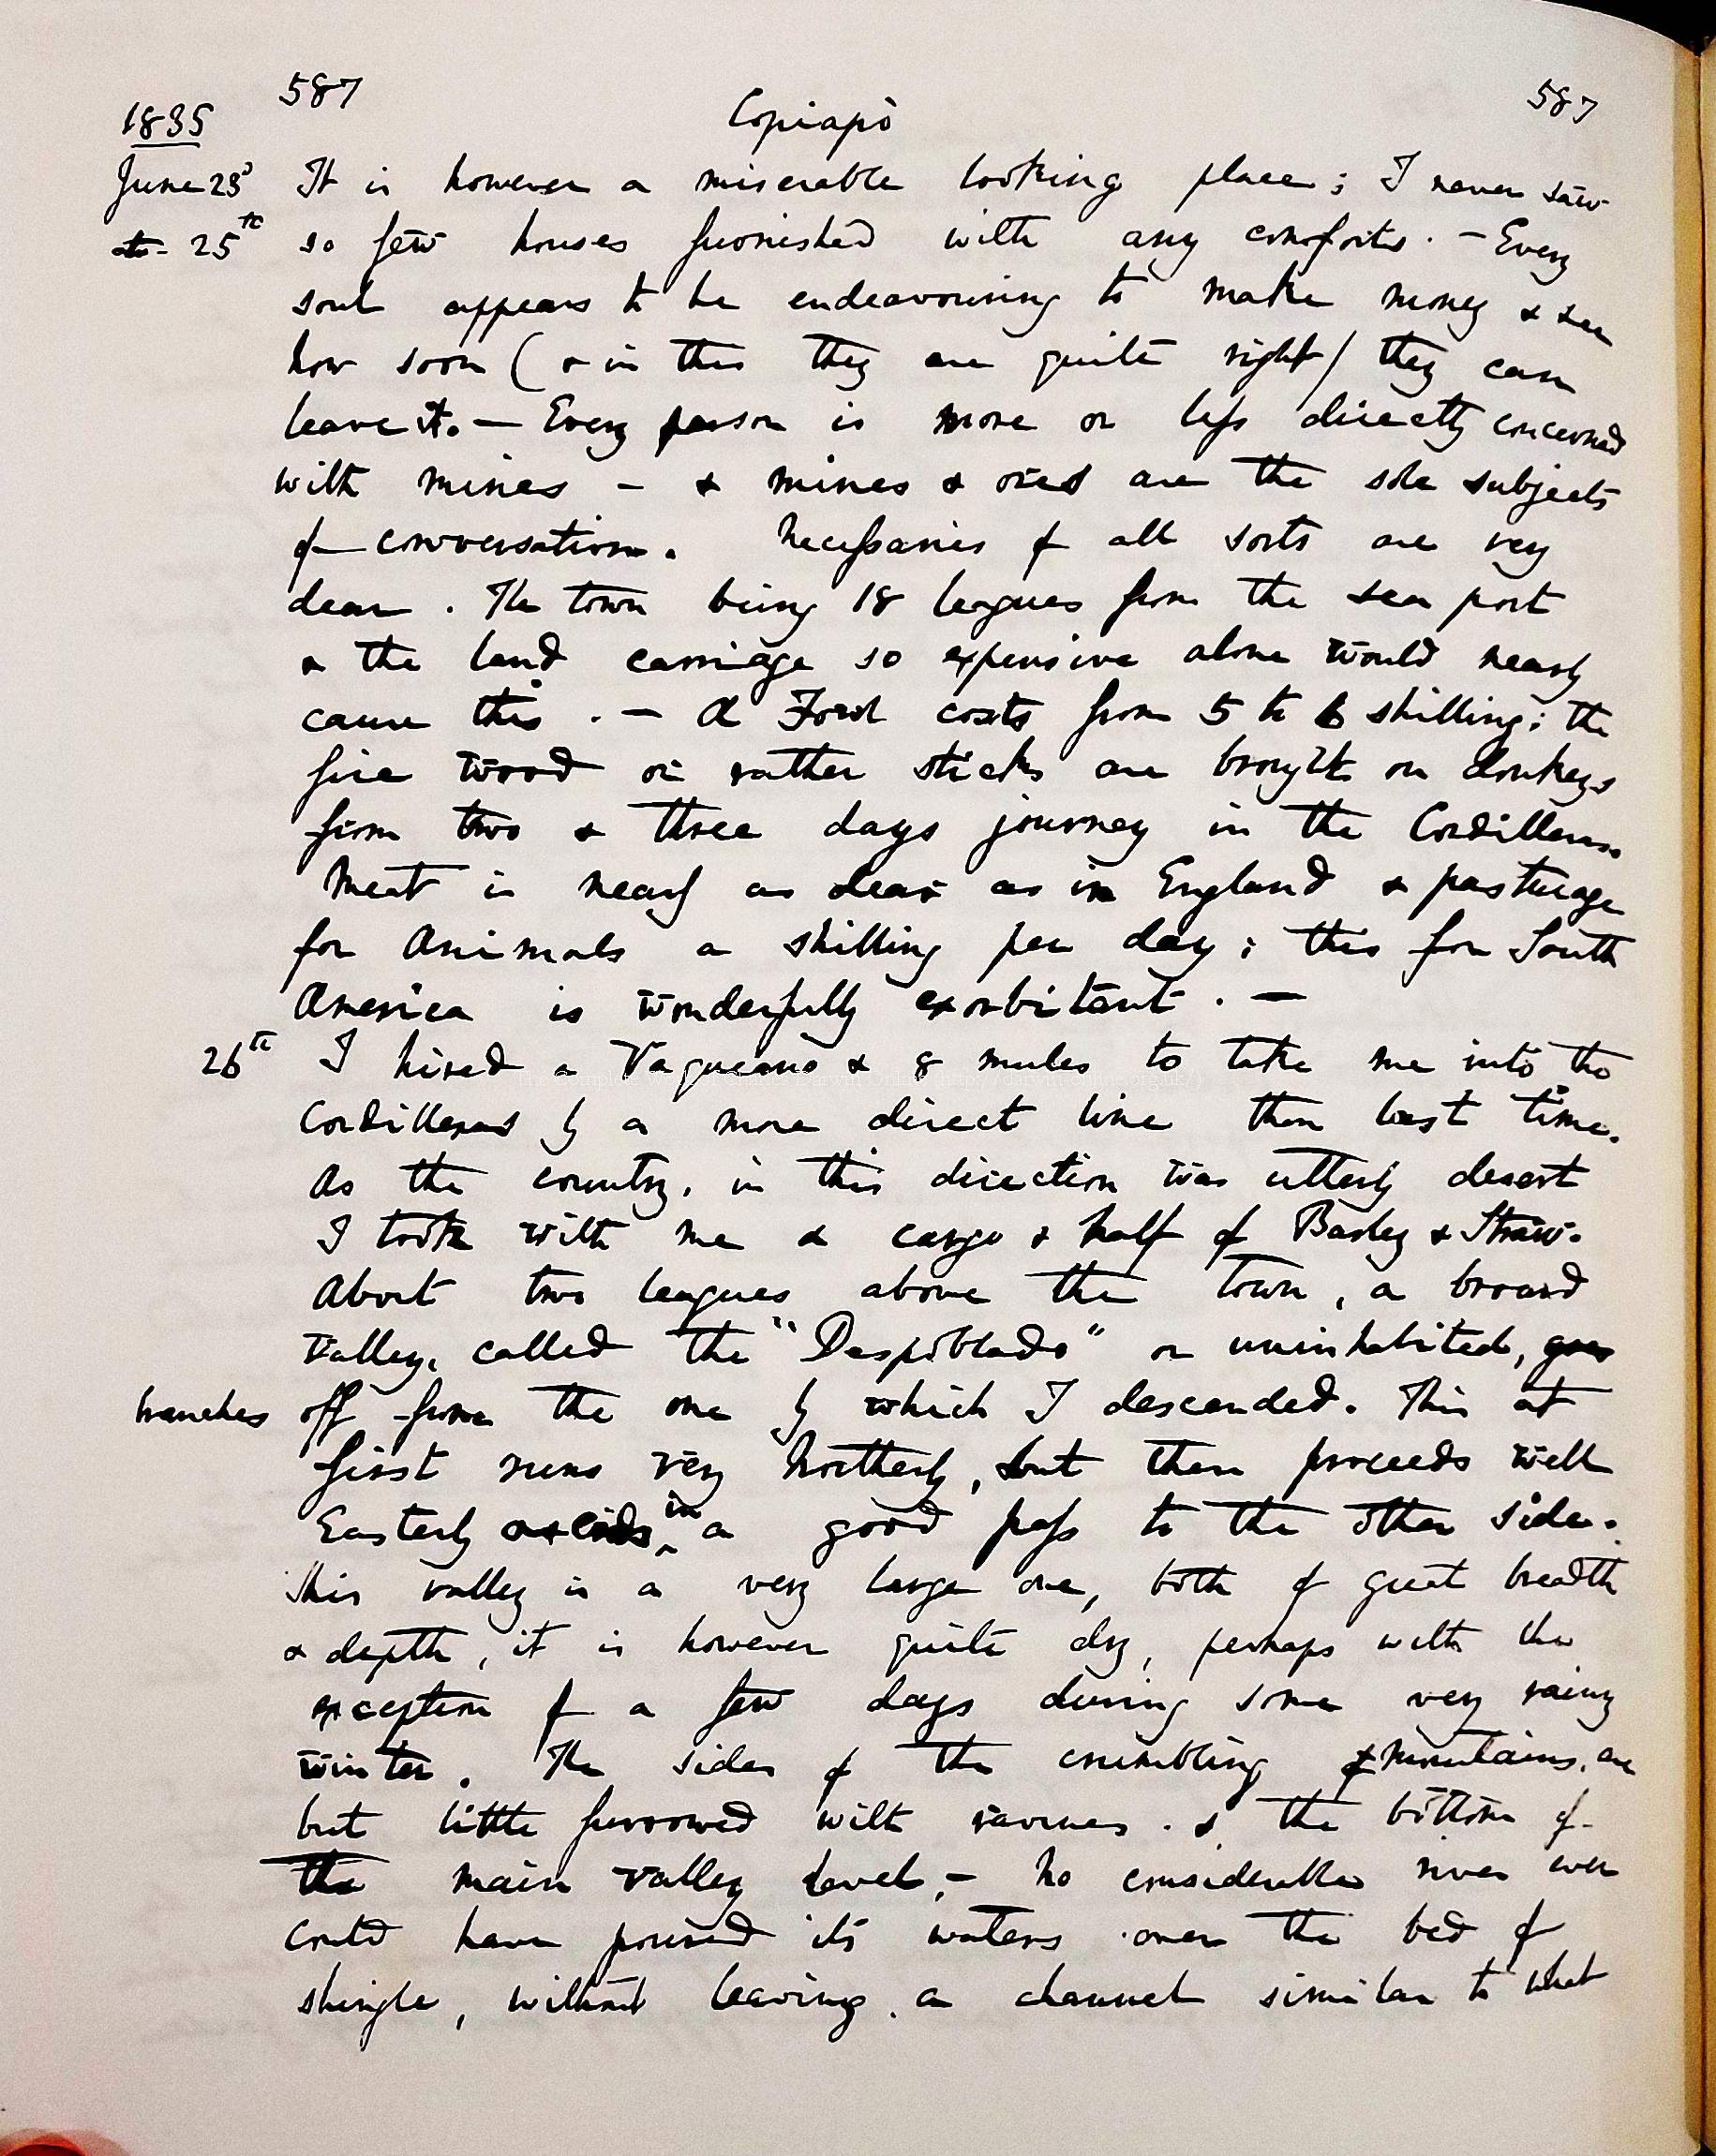 587 587
1835 Copiapò
June 23d It is however a miserable looking place; I never saw
to 25th so few houses furnished with any comforts. — Every
soul appears to be endeavouring to make money & see
how soon (& in this they are quite right) they can
leave it. — Every person is more or less directly concerned
with mines — & mines & ores are the sole subjects
of conversation. Necessaries of all sorts are very
dear. The town being 18 leagues from the sea port
& the land carriage so expensive alone would nearly
cause this. — A Fowl costs from 5 to 6 shilling: the
fire wood or rather sticks are brought on donkeys
from two & three days journey in the Cordilleras.
Meat is nearly as dear as in England & pasturage
for Animals a shilling per day; this for South
America is wonderfully exorbitant. —
26th I hired a Vaqueano & 8 mules to take me into the
Cordilleras by a more direct line than last time.
As the country, in this direction was utterly desert
I took with me a cargo & half of Barley & Straw.
About two leagues above the town, a broard
valley, called the "Despoblado" or uninhabited, goes
branches off from the one by which I descended. This at
first runs very Northerly, but then proceeds well
Easterly in a good pass to the other side.
This valley is a very large one, both of great breadth
& depth, it is however quite dry, perhaps with the
exception of a few days during some very rainy
winter. The sides of the crumbling mountains, are
but little furrowed with ravines. & the bottom of
the main valley level, — no considerable river ever
could have poured its waters over the bed of
shingle, without leaving a channel similar to what